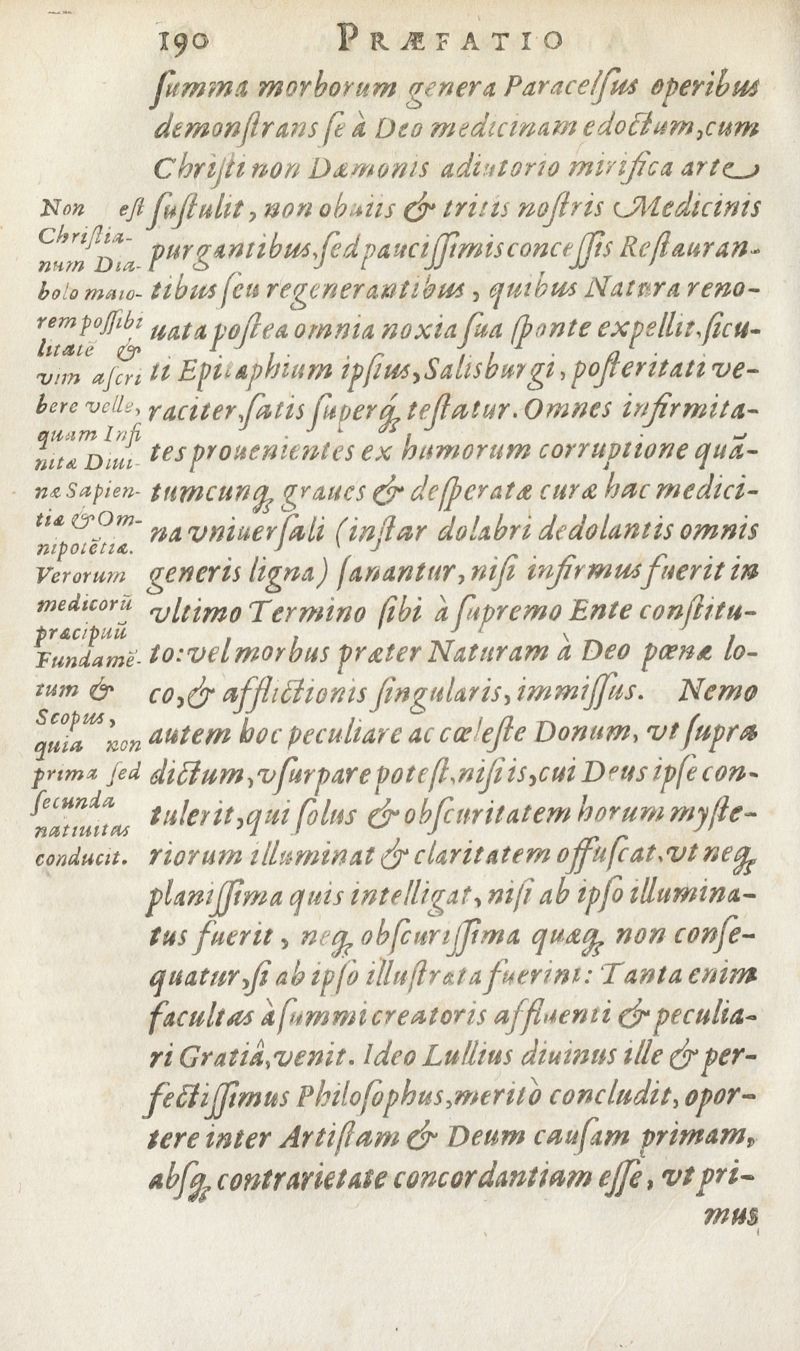 190 PRÆFATIO
ſumma morborum genera Paracelſus operibus
demonſtrans ſe à Deo medicinam edoctum, cum
Chriſti non Dæmonis adiutorio mirifica arte
ſuſtulit, non obuiis & tritis noſtris Medicinis
purgantibus, ſed pauciſſimis conceſſis Reſtauran-
tibus ſeu regenerantibus, quibus Natura reno-
uata poſtea omnia noxia ſua ſponte expellit, ſicu-
ti Epitaphium ipſius, Salisburgi, poſteritati ve-
raciter, ſatis ſuperq́; teſtatur. Omnes infirmita-
tes prouenientes ex humorum corruptione quā-
tumcunq; graues & deſperatæ curæ hac medici-
na vniuerſali (inſtar dolabri dedolantis omnis
generis ligna) ſanantur, niſi infirmus fuerit in
vltimo Termino ſibi à ſupremo Ente conſtitu-
to: vel morbus præter Naturam à Deo pœnæ lo-
co, & afflictionis ſingularis, immiſſus. Nemo
autem hoc peculiare ac cœleſte Donum, vt ſupra
dictum, vſurpare poteſt, niſi is, cui Deus ipſe con-
tulerit, qui ſolus & obſcuritatem horum myſte-
riorum illuminat & claritatem offuſcat, vt neq;
planiſſima quis intelligat, niſi ab ipſo illumina-
tus fuerit, neq; obſcuriſſima quæq; non conſe-
quatur, ſi ab ipſo illuſtrata fuerint: Tanta enim
facultas à ſummi creatoris affluenti & peculia-
ri Gratiâ, venit. Ideo Lullius diuinus ille & per-
fectiſſimus Philoſophus, meritò concludit, opor-
tere inter Artiſtam & Deum cauſam primam,
abſq; contrarietate concordantiam eſſe, vt pri-
mus
Non eſt
Chriſtia-
num Dia-
bolo maio-
rem poſſibi
litatē &
vim aſcri
bere velle,
quam Infi
nitæ Diui-
næ Sapien-
tiæ & Om-
nipotētiæ.
Verorum
medicorū
præcipuū
Fundamē-
tum &
Scopus,
quia non
prima ſed
ſecunda
natiuitas
conducit.